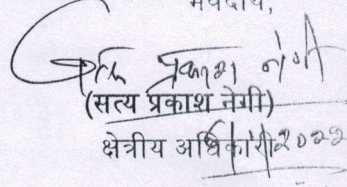 भवदीय,
सत्य प्रकाश नेगी
(सत्य प्रकाश नेगी)
क्षेत्रीय अधिकारी